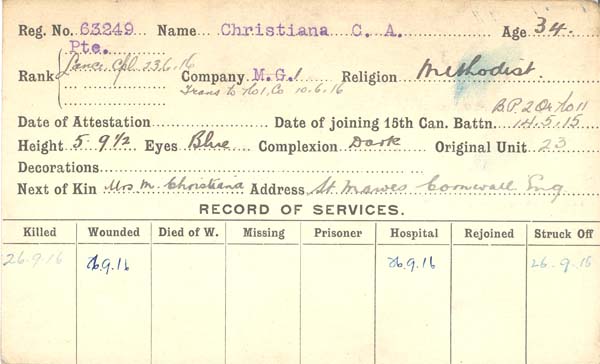 Reg. No. 63249 Name Christiana C. A. Age 34.
Pte.
Rank Lance Cpl. 23.6.16 Company M.G. 1 Religion Methodist.
Trans to No 1, Co 10.6.16
B.P. 2 Or No 11
Date of Attestation Date of joining 15th Can. Battn. 14.5.15
Height 5. 9½ Eyes Blue Complexion Dark Original Unit 23
Decorations
Next of Kin Mrs M. Christiana Address St. Mawes Cornwall Eng
RECORD OF SERVICES.
Killed Wounded Died of W. Missing Prisoner Hospital Rejoined Struck Off
26.9.16 26.9.16 26.9.16 26.9.16